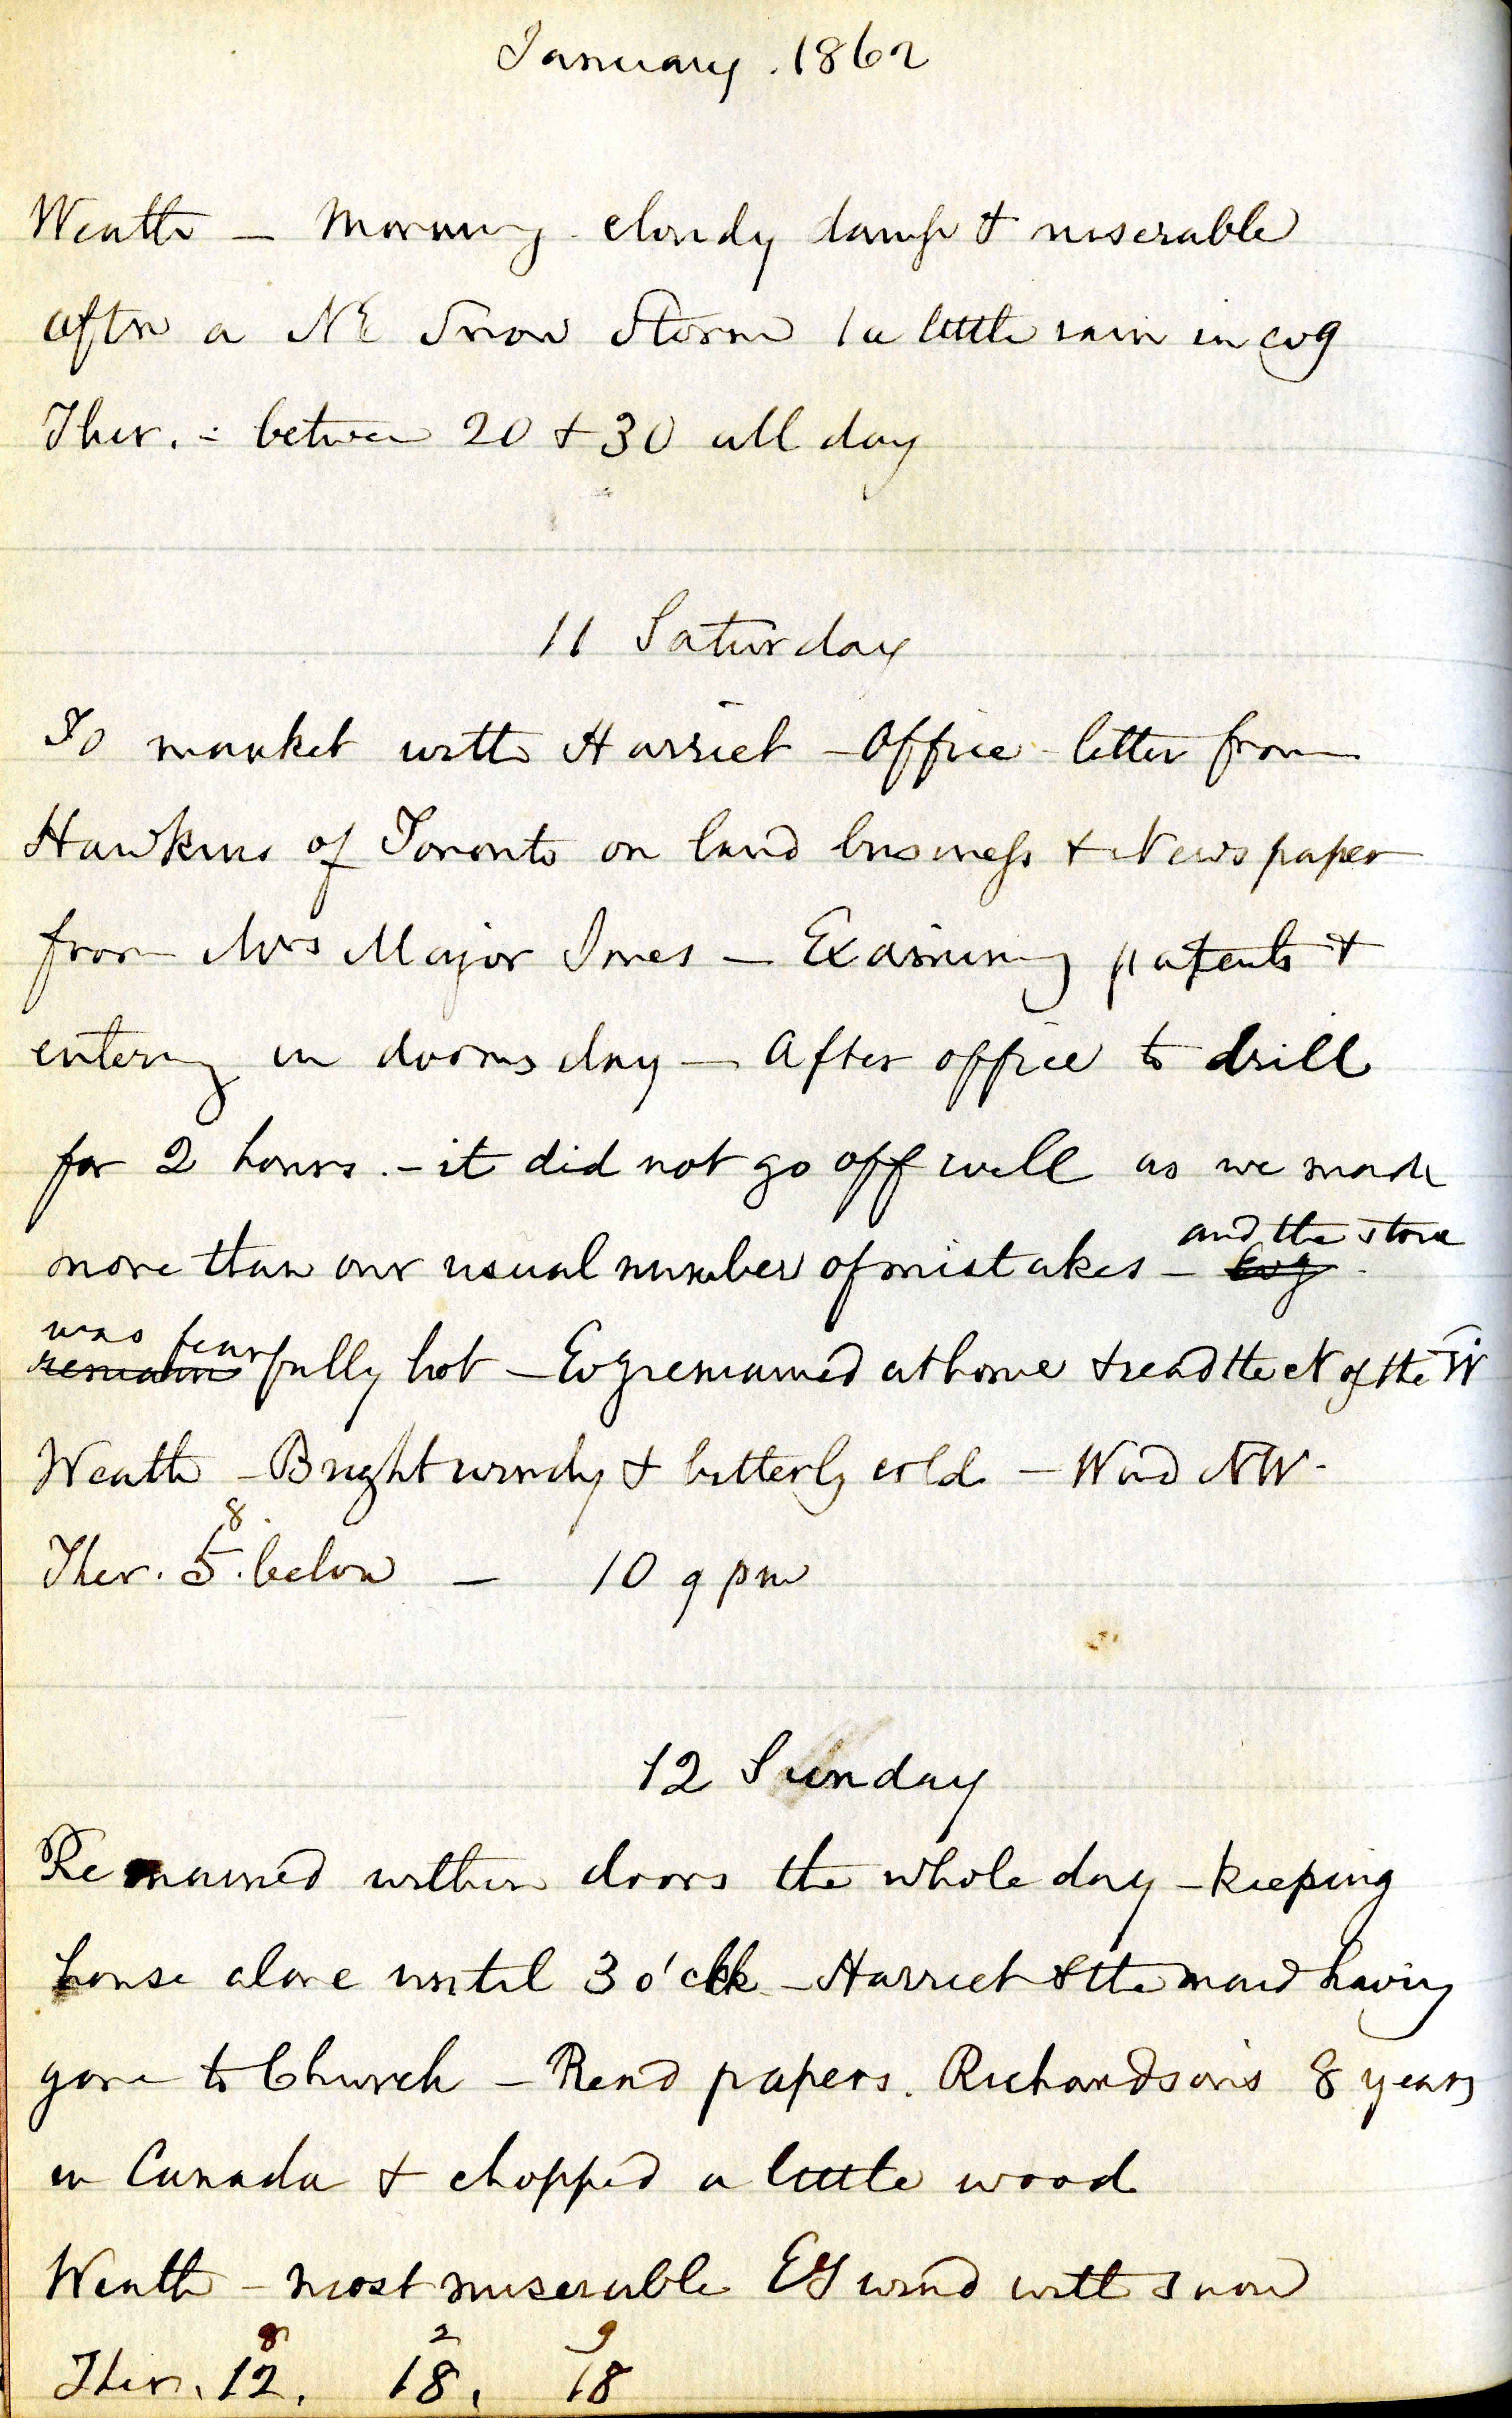 January. 1862
Weath - Morning cloudy damp & miserable
aftn a NE Snow Storm / a little rain in evg
Ther. = between 20 & 30 all day
11 Saturday
To market with Harriet - Office - letter from
Hawkins of Toronto on land business & Newspaper
from Mrs Major Ines - Examining patents &
entering in dooms day - After office to drill
for 2 hours. - it did not go off well as we made
more than our usual number of mistakes - Evg and the stove
remain was fearfully hot - Evg remained at home & read the N of the W
Weath - Bright windy & bitterly cold - Wind NW -
8
Ther. 5. below - 10 9 pm
12 Sunday
Remained within doors the whole day - keeping
house alone until 3 o'clk - Harriet & the maid having
gone to Church - Read papers. Richardson's 8 years
in Canada & chopped a little wood
Weath - most miserable Ely wind with snow
8 2 9
Ther. 12. 18. 18